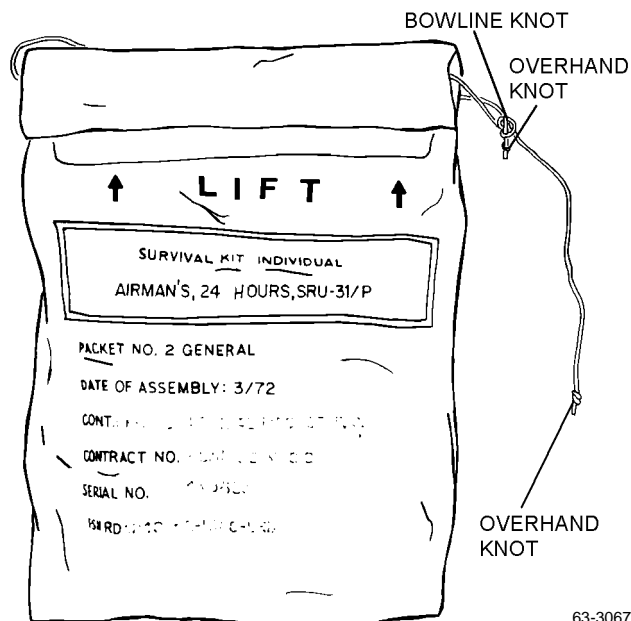 BOWLINE KNOT
OVERHAND
KNOT
LIFT
SURVIVAL KIT INDIVIDUAL
AIRMAN'S, 24 HOURS, SRU-31/P
PACKET NO. 2 GENERAL
DATE OF ASSEMBLY: 3/72
CONT.
CONTRACT NO.
SERIAL NO.
OVERHAND
KNOT
63-3067